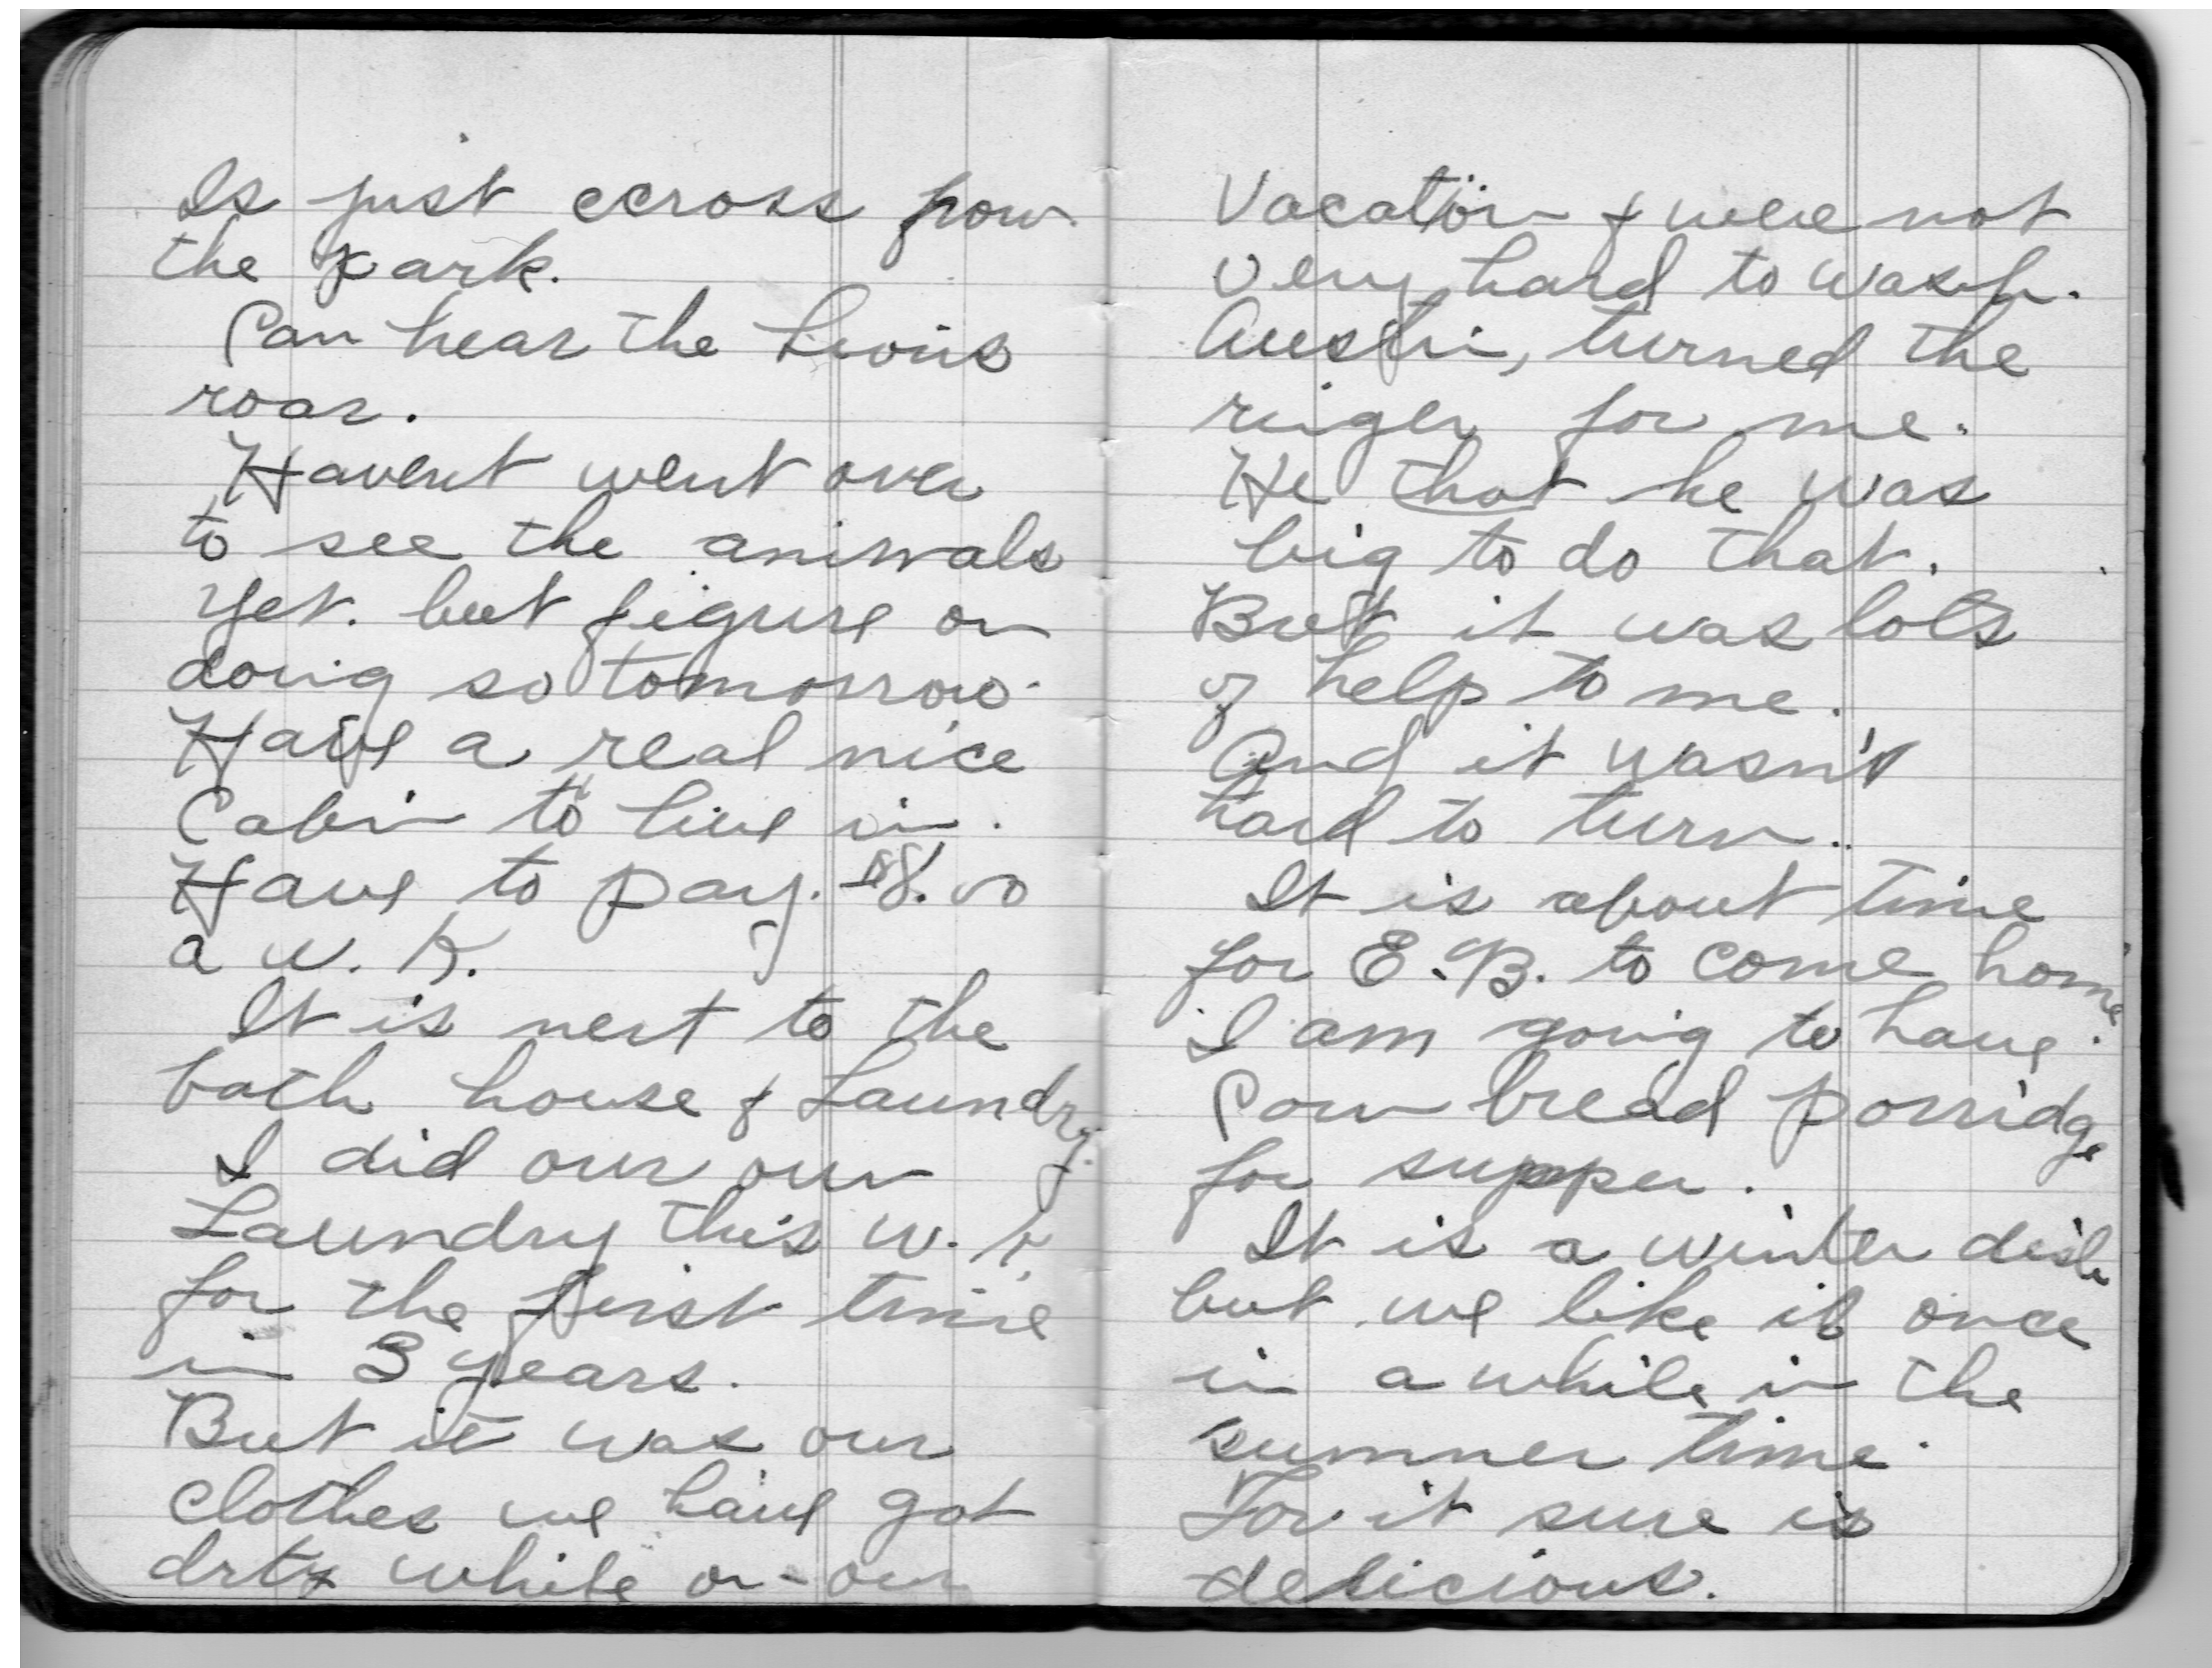 Is just ccross from
the park.
Can hear the Lions
roar.
Havent went over
to see the animals
yet. but figure on
doing so tomorrow.
Have a real nice
Cabin to live in.
Have to pay. $8.00
a w. k.
It is next to the
bath house & Laundry.
I did our own
Laundry this w. k.
for the first time
in 3 years.
But it was our
clothes we have got
drty while on our
Vacation & were not
very hard to wash.
Austin, turned the
ringer for me.
He thot he was
big to do that.
But it was lots
of help to me.
And it wasn't
hard to turn.
It is about time
for E. B. to come home.
I am going to have
Corn bread porridge
for supper.
It is a winter dish
but we like it once
in a while in the
summer time.
For it sure is
delicious.